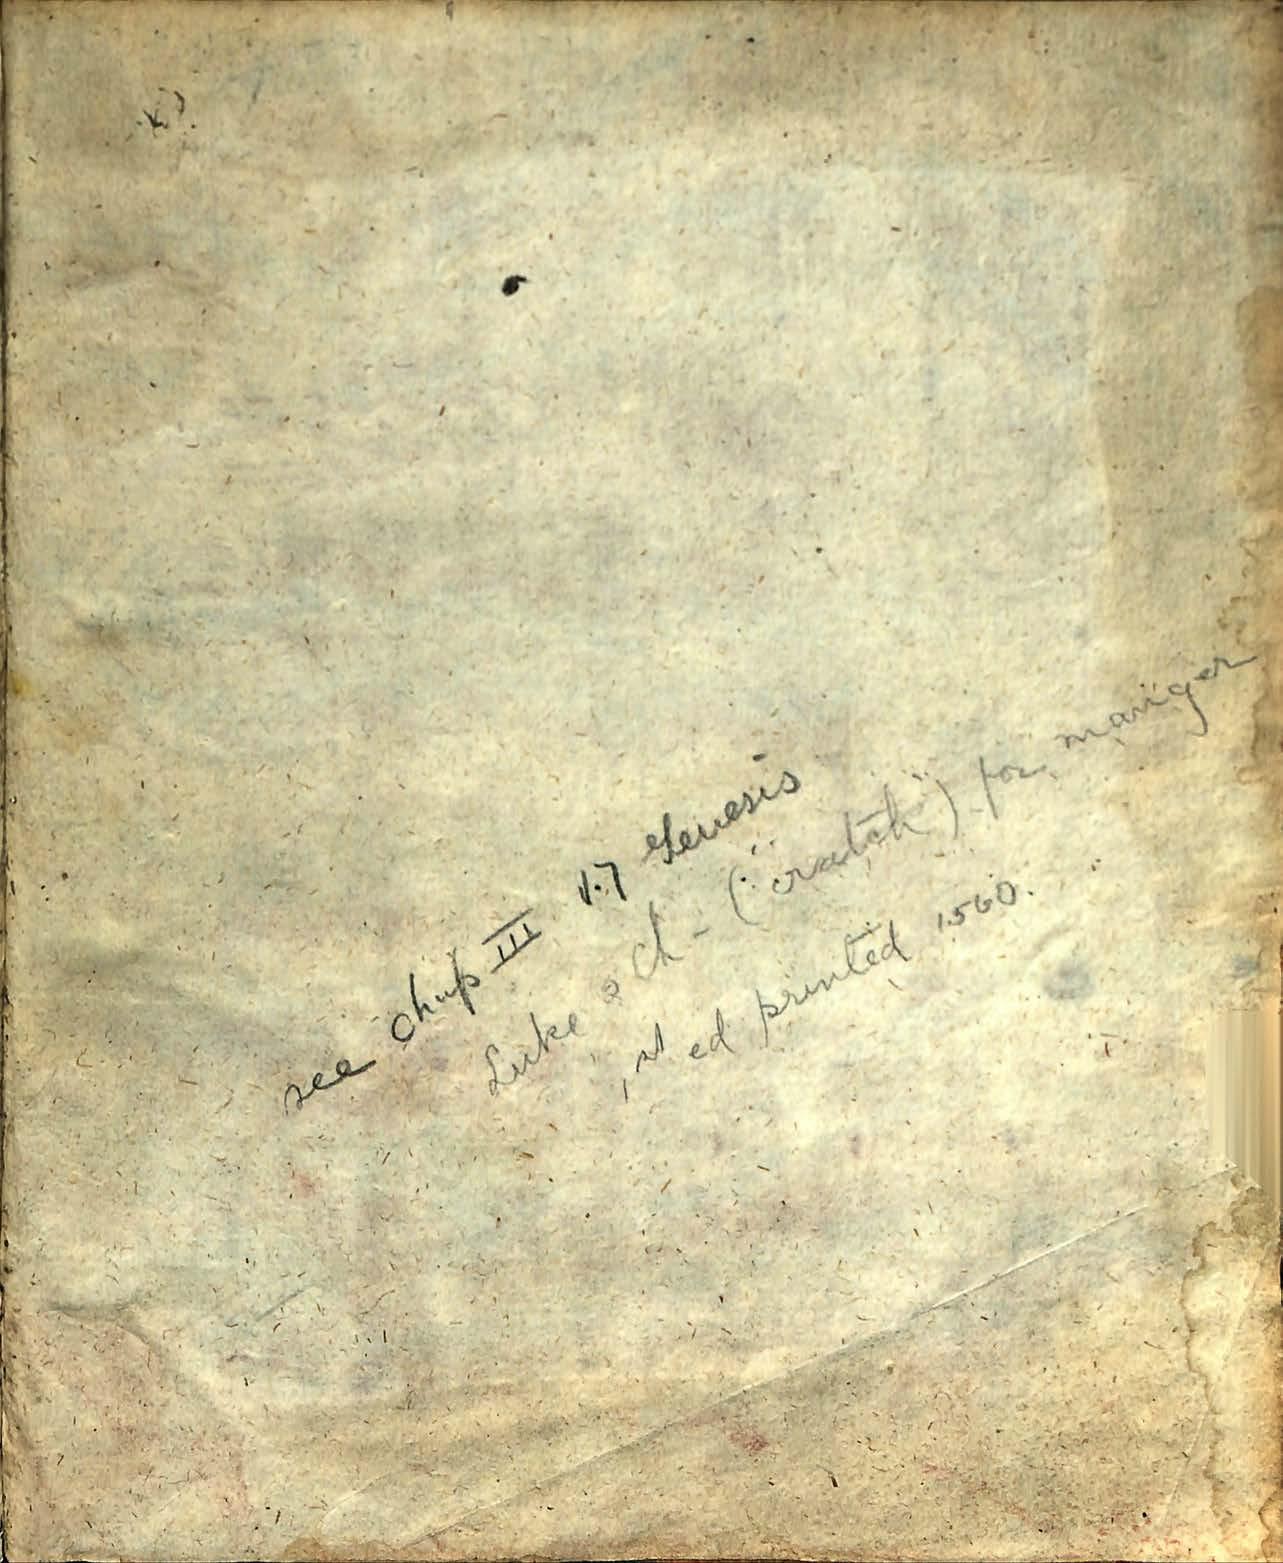 see Chap III v.7 Genesis
Luke 2 Ch - ("cratch") for manger
1st ed printed 1560.